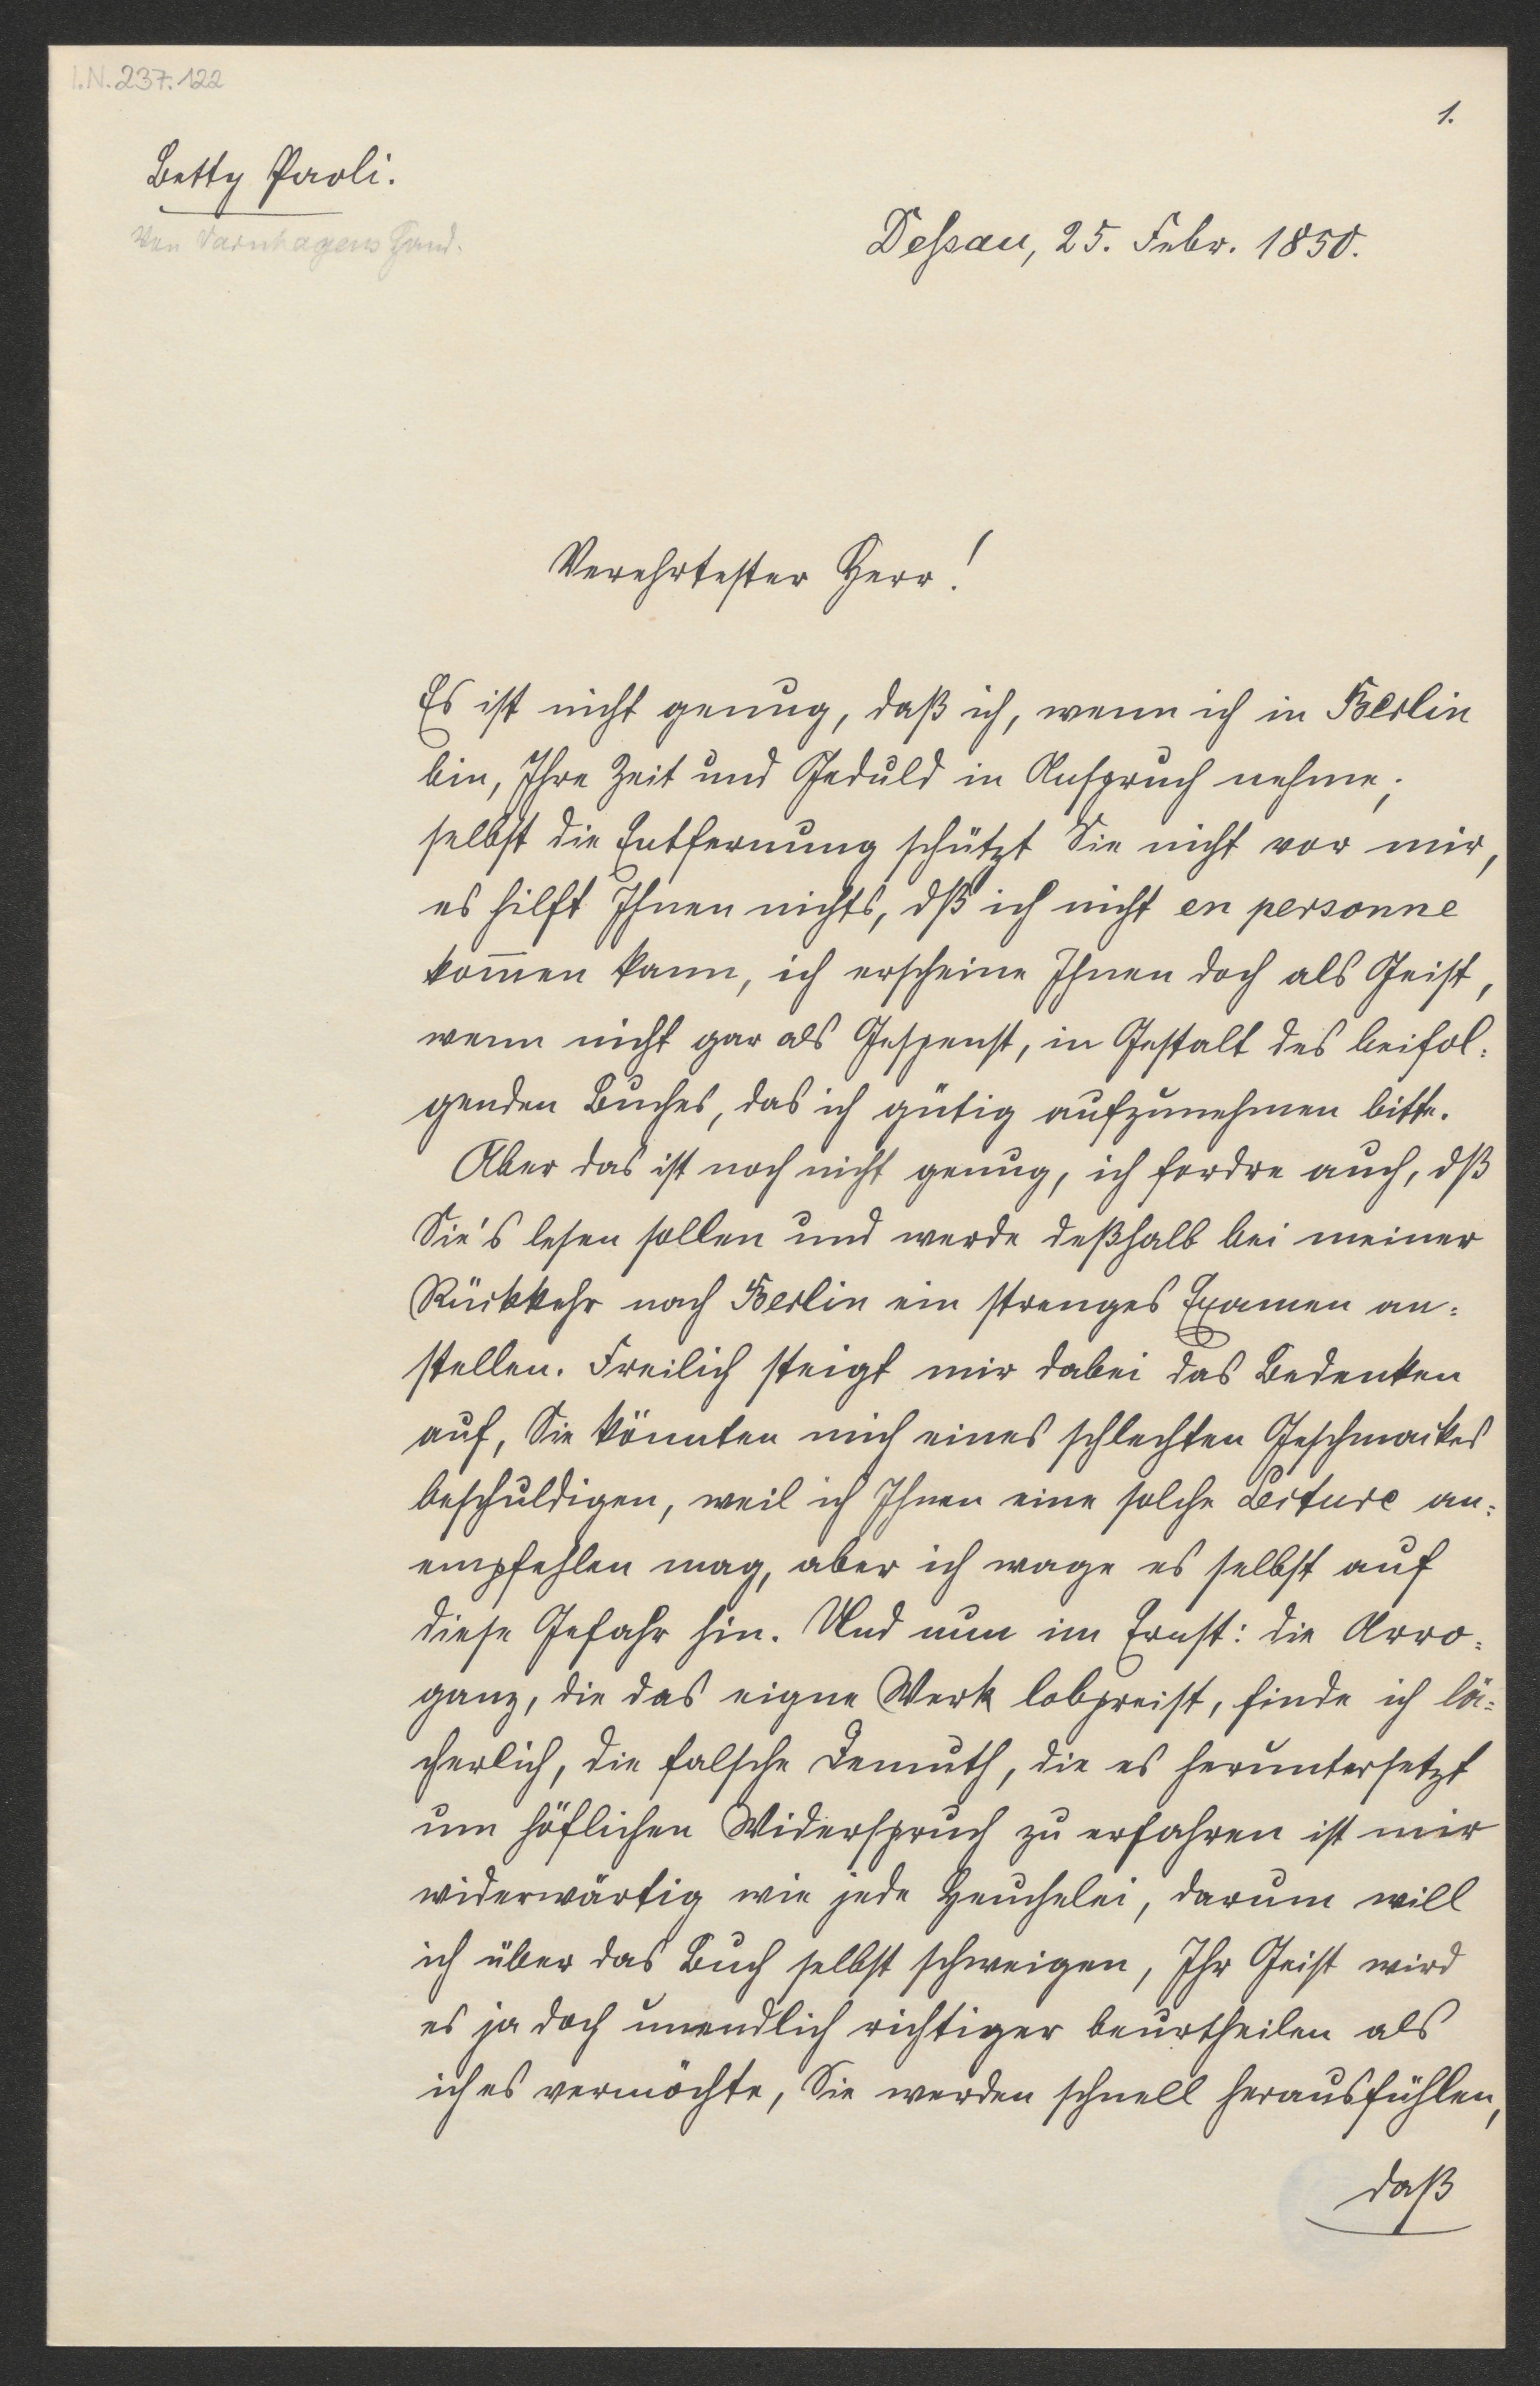 I.N. 237.122
1.
Betty Paoli.
Von Varnhagens Hand.
Dessau, 25. Febr. 1850.
Verehrtester Herr!
Es ist nicht genug, daß ich, wenn ich in Berlin
bin, Ihre Zeit und Geduld in Anspruch nehme;
selbst die Entfernung schützt Sie nicht vor mir,
es hilft Ihnen nichts, dß ich nicht en personne
kom̅en kann, ich erscheine Ihnen doch als Geist,
wenn nicht gar als Gespenst, in Gestalt des beifol=
genden Buches, das ich gütig aufzunehmen bitte.
Aber das ist noch nicht genug, ich fordre auch, dß
Sie's lesen sollen und werde deßhalb bei meiner
Rückkehr nach Berlin ein strenges Examen an=
stellen. Freilich steigt mir dabei das Bedenken
auf, Sie könnten mich eines schlechten Geschmackes
beschuldigen, weil ich Ihnen eine solche Lecture an=
empfehlen mag, aber ich wage es selbst auf
diese Gefahr hin. Und nun im Ernst: die Arro=
ganz, die das eigne Werk lobpreist, finde ich lä=
cherlich, die falsche Demuth, die es heruntersetzt
um höflichen Widerspruch zu erfahren ist mir
widerwärtig wie jede Heuchelei, darum will
ich über das Buch selbst schweigen, Ihr Geist wird
es ja doch unendlich richtiger beurtheilen als
ich es vermöchte, Sie werden schnell herausfühlen,
daß